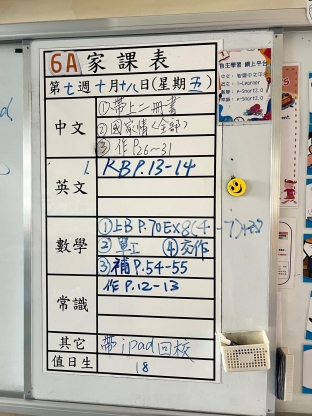 6A 家課表
第七週十月十八日(星期五)
中文
①帶上二冊書
②國家情(全部)
③作P.26-31
英文
1. KB P.13-14
數學
①上B P.70 EX8(4-7)
②單工 ④交作
③補P.54-55
常識
作P.12-13
其它
帶ipad回校
值日生
18
自主學習 網上平台